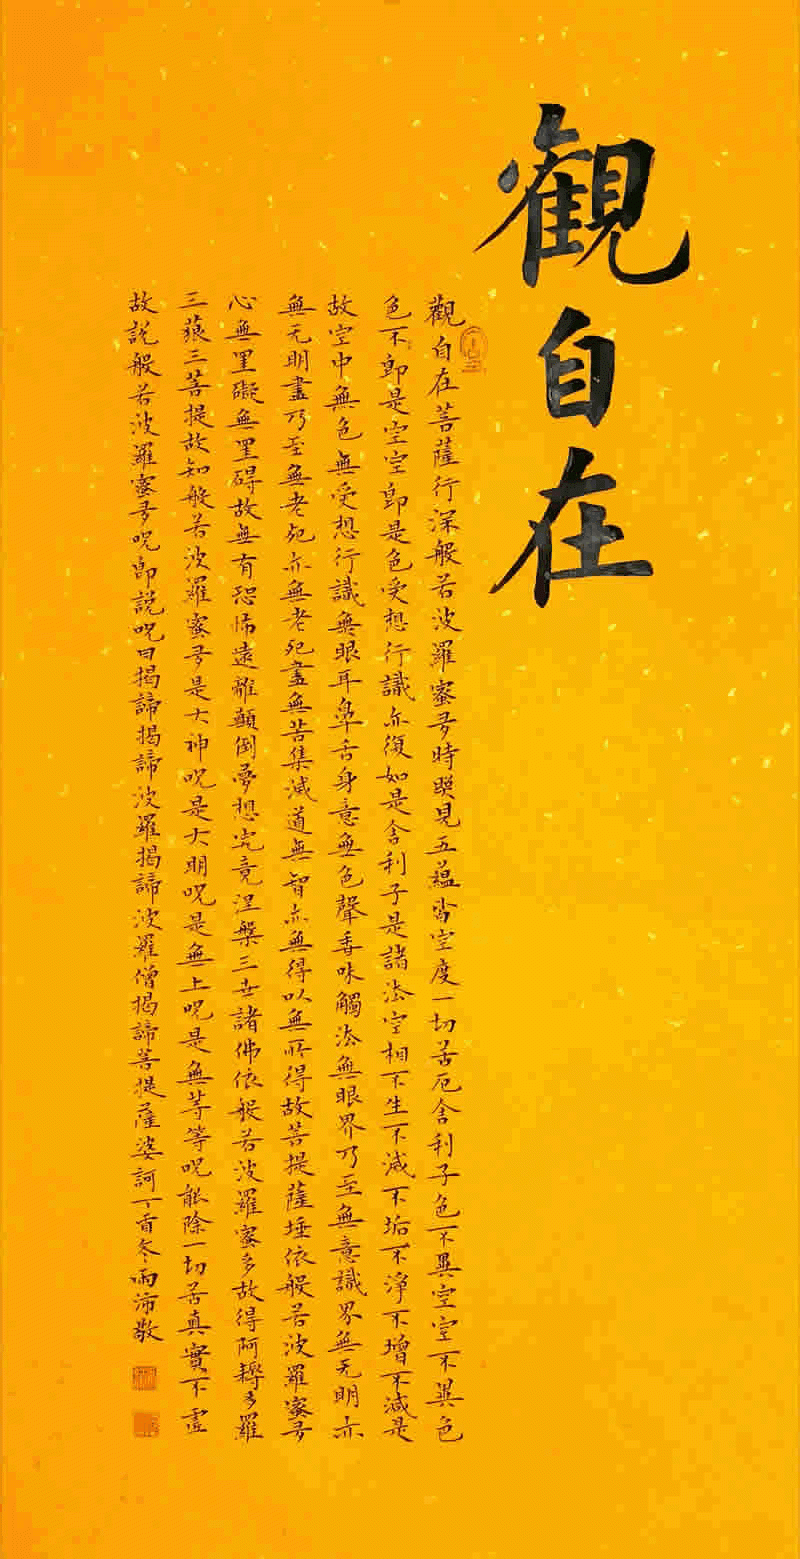 觀自在
觀自在菩薩行深般若波羅蜜多時照見五蘊皆空度一切苦厄舍利子色不異空空不異色
色不即是空空即是色受想行識亦復如是舍利子是諸法空相不生不滅不垢不淨不增不減是
故空中無色無受想行識無眼耳鼻舌身意無色聲香味觸法無眼界乃至無意識界無无明亦
無无明盡乃至無老死亦無老死盡無苦集滅道無智亦無得以無所得故菩提薩埵依般若波羅蜜多
心無罣礙無罣碍故無有恐怖遠離顛倒夢想究竟涅槃三世諸佛依般若波羅蜜多故得阿耨多羅
三藐三菩提故知般若波羅蜜多是大神呪是大明呪是無上呪是無等等呪能除一切苦真實不虛
故說般若波羅蜜多呪即說呪曰揭諦揭諦波羅揭諦波羅僧揭諦菩提薩婆訶丁酉冬雨沛敬